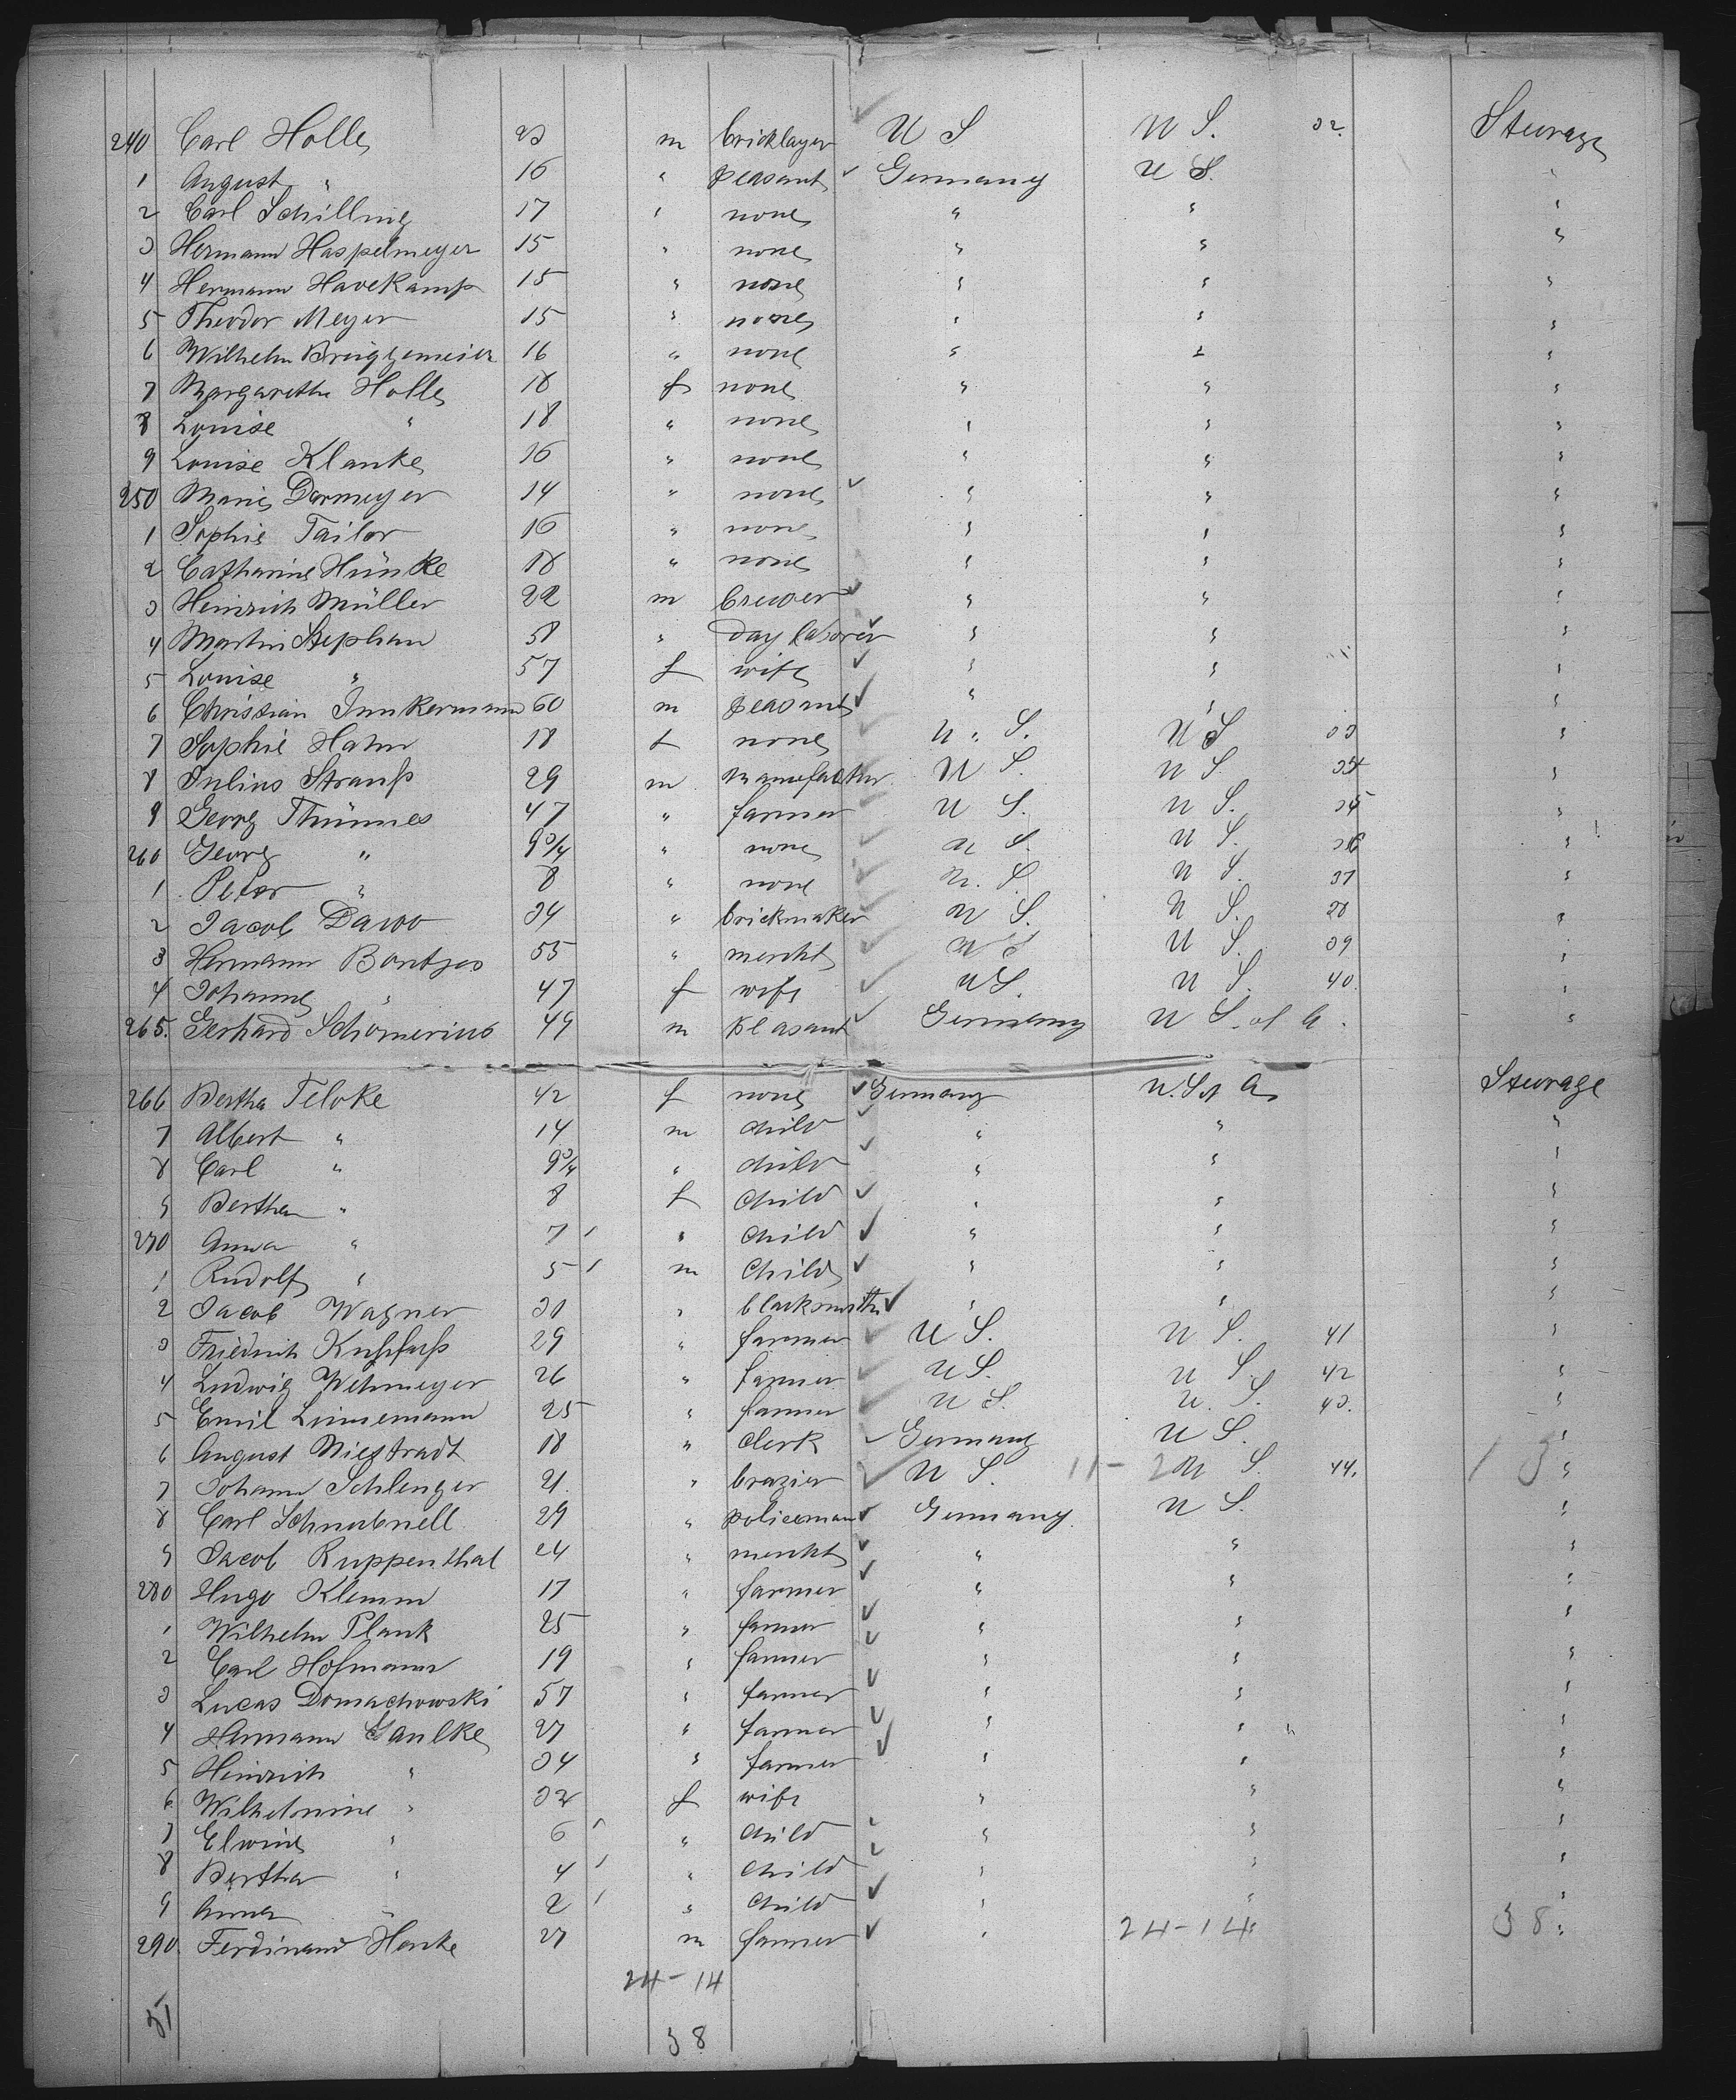 240 Carl Holle 23 m bricklayer U S U S. 32. Steerage
1 August " 16 " peasant Germany U S. "
2 Carl Schilling 17 " none " " "
3 Hermann Haspelmeyer 15 " none " " "
4 Hermann Havekamp 15 " none " " "
5 Theodor Meyer 15 " none " " "
6 Wilhelm Brüggemeier 16 " none " " "
7 Margarethe Holle 18 f none " " "
8 Louise " 18 " none " " "
9 Louise Klanke 16 " none " " "
250 Marie Dormeyer 14 " none " " "
1 Sophie Tailor 16 " none " " "
2 Catharine Hünke 18 " none " " "
3 Heinrich Müller 22 m brewer " " "
4 Martin Stephan 58 " day laborer " " "
5 Louise " 57 f wife " " "
6 Christian Junkermann 60 m peasant " " "
7 Sophie Hahn 18 f none U. S. U S 33 "
8 Julius Strauß 29 m manufactur. U S. U S. 34 "
9 Georg Thümmes 47 " farmer U S. U S. 35 "
260 Georg " 9 3/4 " none U S. U S. 36 "
1 Peter " 8 " none U. S. U S. 37 "
2 Jacob Dawo 34 " brickmaker U S. U S. 38 "
3 Hermann Bontjes 55 " mercht U S U S. 39 "
4 Johanne " 47 f wife U S. U S. 40. "
265. Gerhard Schomerius 49 m peasant Germany U S. of A. "
266 Bertha Felske 42 f none Germany U. S. of A. Steerage
7 Albert " 14 m child " " "
8 Carl " 9 3/4 " child " " "
9 Bertha " 8 f child " " "
270 Anna " 7 " child " " "
1 Rudolf " 5 m child " " "
2 Jacob Wagner 30 " blacksmith " " "
3 Friedrich Kuhfuß 29 " farmer U S. U S. 41 "
4 Ludwig Wehmeyer 26 " farmer U S. U S. 42 "
5 Emil Linnemann 25 " farmer U S. U. S. 43. "
6 August Niestradt 18 " clerk Germany U S. "
7 Johann Schlenger 21. " brazier U S. 11-2 U S. 44. "
8 Carl Schnubnell 29 " policeman Germany. U S. "
9 Jacob Ruppenthal 24 " mercht " " "
280 Hugo Klemm 17 " farmer " " "
1 Wilhelm Plank 25 " farmer " " "
2 Carl Hofmann 19 " farmer " " "
3 Lucas Domachowski 57 " farmer " " "
4 Hermann Gaulke 27 " farmer " " "
5 Heinrich " 34 " farmer " " "
6 Wilhelmine " 32 f wife " " "
7 Elwine " 6 " child " " "
8 Bertha " 4 " child " " "
9 Anna " 2 " child " " "
290 Ferdinand Hanke 27 m farmer " 24-14 38
24-14
51
38